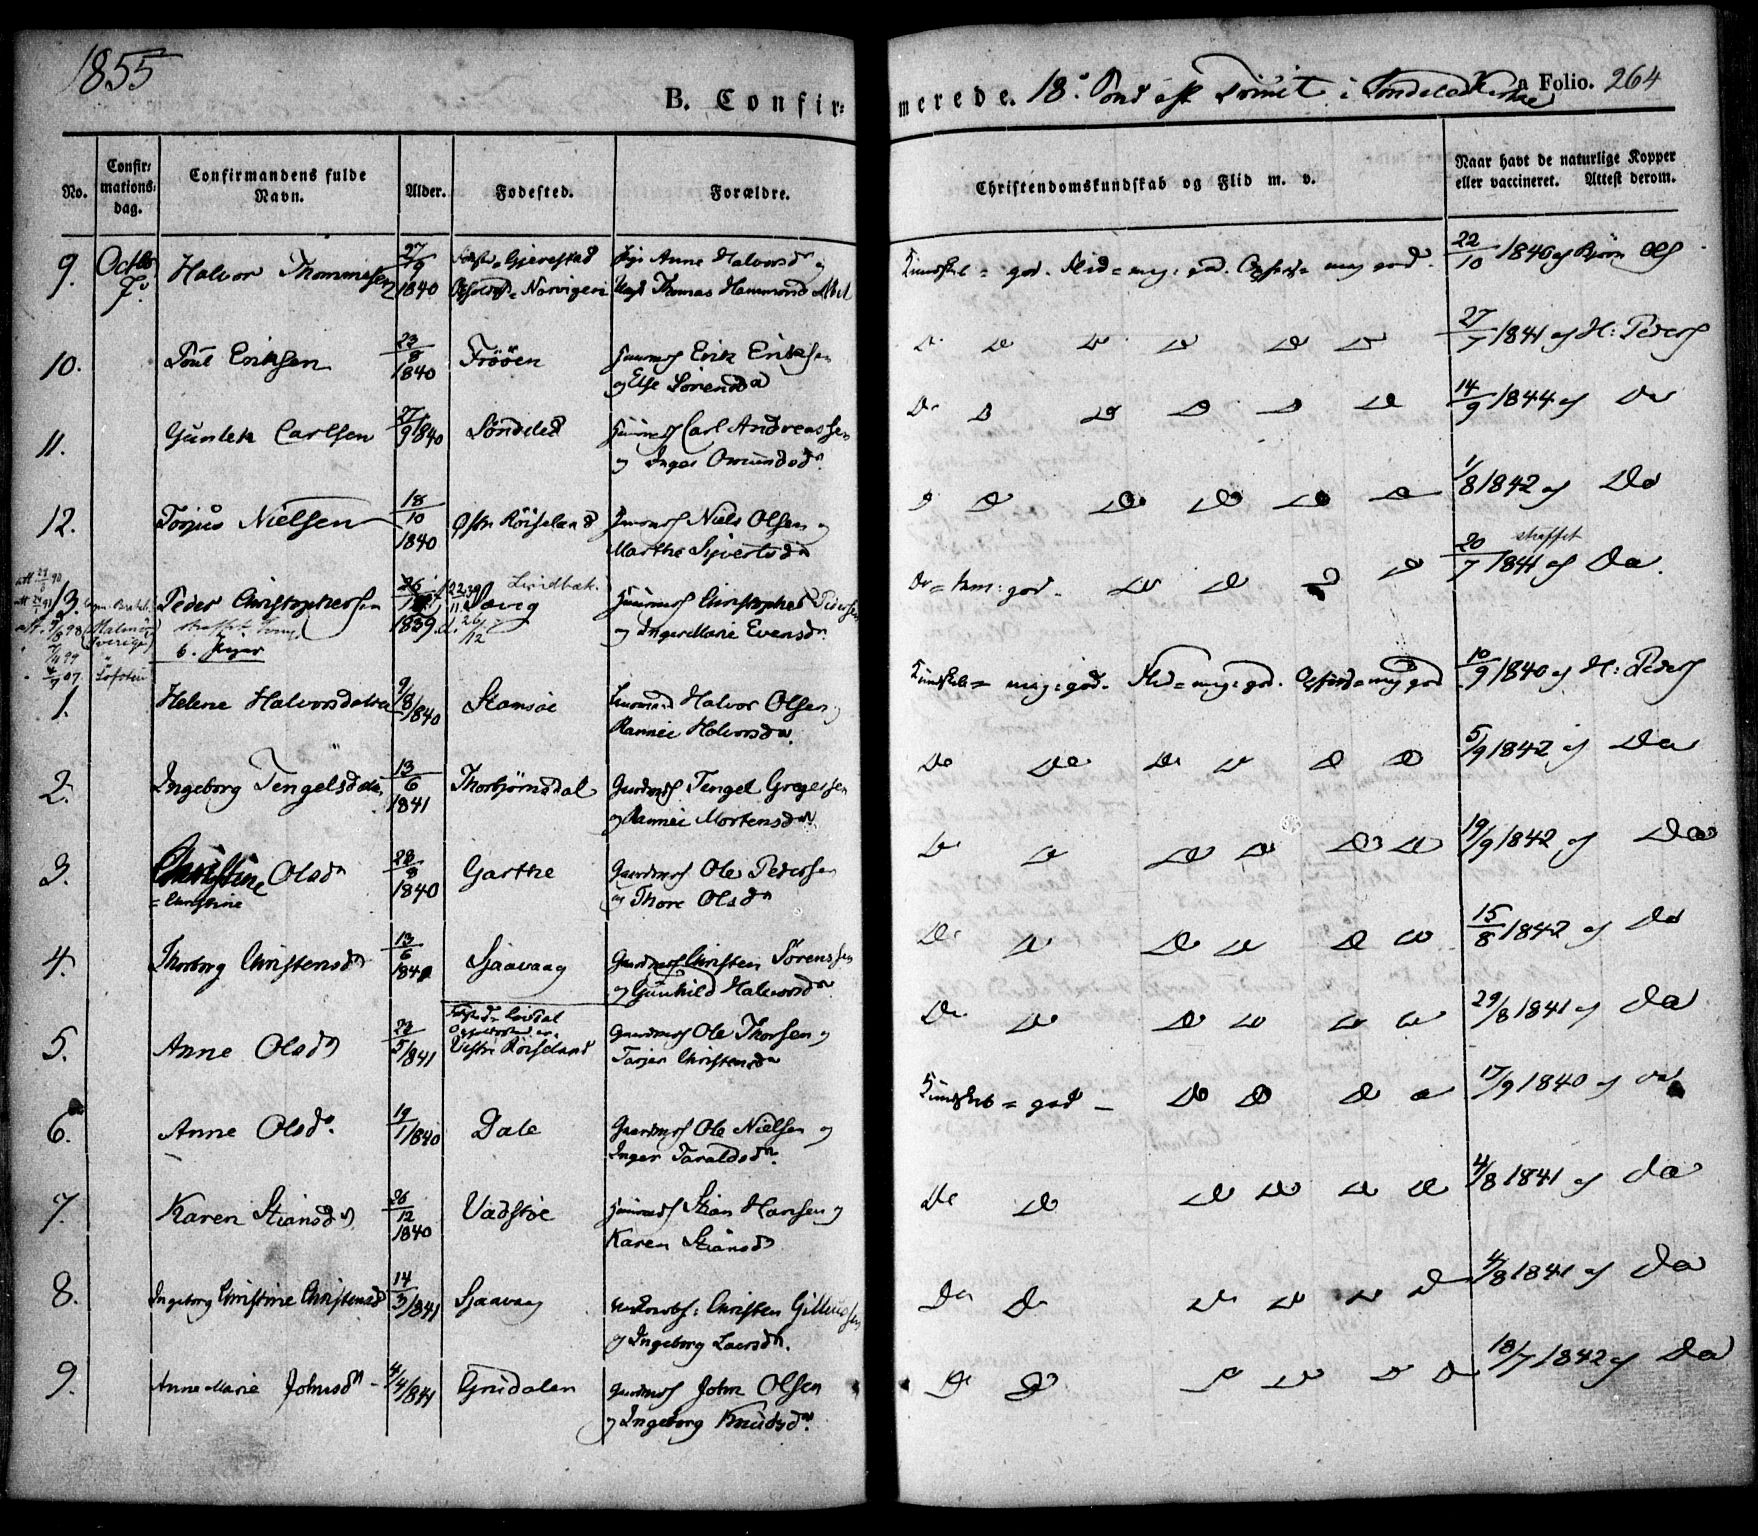 1855
B. Confir=
merede. 18. Sönd. eft. Trinit. i Söndeled Kirke a Folio. 264
No.
Confir=
mations=
dag.
Confirmandens fulde
Navn.
Alder.
Fodested.
Forældre.
Christendomskundskab og Flid m. v.
Naar havt de naturlige Kopper
eller vaccineret. Attest derom.
9. Octbr 7. Halvor Thommesen 27/9 1840 Gjerestad Anne Halvorsdr og
Thomas Hammond Abel
Kundskab = god. Flid = meg: god. Opførsel = meg god. 22/10 1840 af Bjørn Ols
10. Poul Eriksen 23/8 1840 Frööen Huusmd Erik Eriksen
og Else Sörensdr
Do Do Do Do Do Do 27/7 1841 af H: Peders
11. Gunlek Carlsen 27/9 1840 Söndeled Huusmd Carl Andreassen
og Inger Omundsdr
Do Do Do Do Do Do 14/9 1844 af Do
12. Torjus Nielsen 18/10 1840 Østre Röiseland Huusmd Niels Olsen og
Marthe Sivertsdr
Do Do Do Do Do 1/8 1842 af Do
13. Peder Christophersen 1839 Lindbæk Savig Huusmd Christopher Pedersen
og Inger Marie Evensdr
Do = kun: god. Do Do Do Do 20/7 1841 af Do straffet
Malmö
Sverige
1. Helene Halvorsdatter 9/8 1840 Stamsöe Huusmand Halvor Olsen og
Rannei Halvorsdr
Kundskab = meg: god. Flid = meg: god. Opførsel = meg god 10/9 1840 af H: Peders
2. Ingeborg Tengelsdatter 13/6 1841 Thorbjörnsdal Gaardmd Tengel Gregersen
og Rannei Mortensdr
Do Do Do Do Do Do 5/9 1842 af Do
3. Christine Olsdr
= Christine
28/8 1840 Garthe Gaardmd Ole Pedersen
og Thore Olsdr
Do Do Do Do Do Do 19/9 1842 af Do
4. Thorborg Christensdr 13/6 1840 Sjaavaag Gaardmd Christen Sörenssen
og Gunhild Halvorsdr
Do Do Do Do Do Do 15/8 1842 af Do
5. Anne Olsdr 22/5 1841 Vestre Röiseland Gaardmd Ole Thorsen og
Tarjer Christensdr
Do Do Do Do Do Do 29/8 1841 af Do
6. Anne Olsdr. 19/1 1840 Dale Gaardmd Ole Nielsen og
Inger Taraldsdr
Kundskab = god – Do Do Do Do 17/9 1840 af Do
7. Karen Stiansdr 26/12 1840 Vadstöe Huusmd Stian Hansen og
Karen Stiansdr
Do Do Do Do Do Do 4/8 1841 af Do
8. Ingeborg Christine Christensd 14/3 1841 Sjaavaag Christen Gillufsen
og Ingeborg Laersdr.
Do Do Do Do Do Do 4/8 1841 af Do
9. Anne Marie Johnsdr 4/4 1841 Grudalen Gaardmd John Olsen
og Ingeborg Knudsdr.
Do Do Do Do Do Do 18/7 1842 af Do